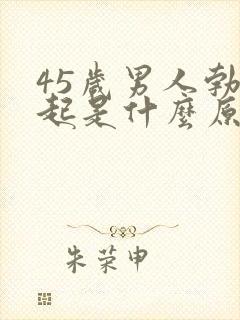 45歲男人勃
起是什麼原
朱荣申